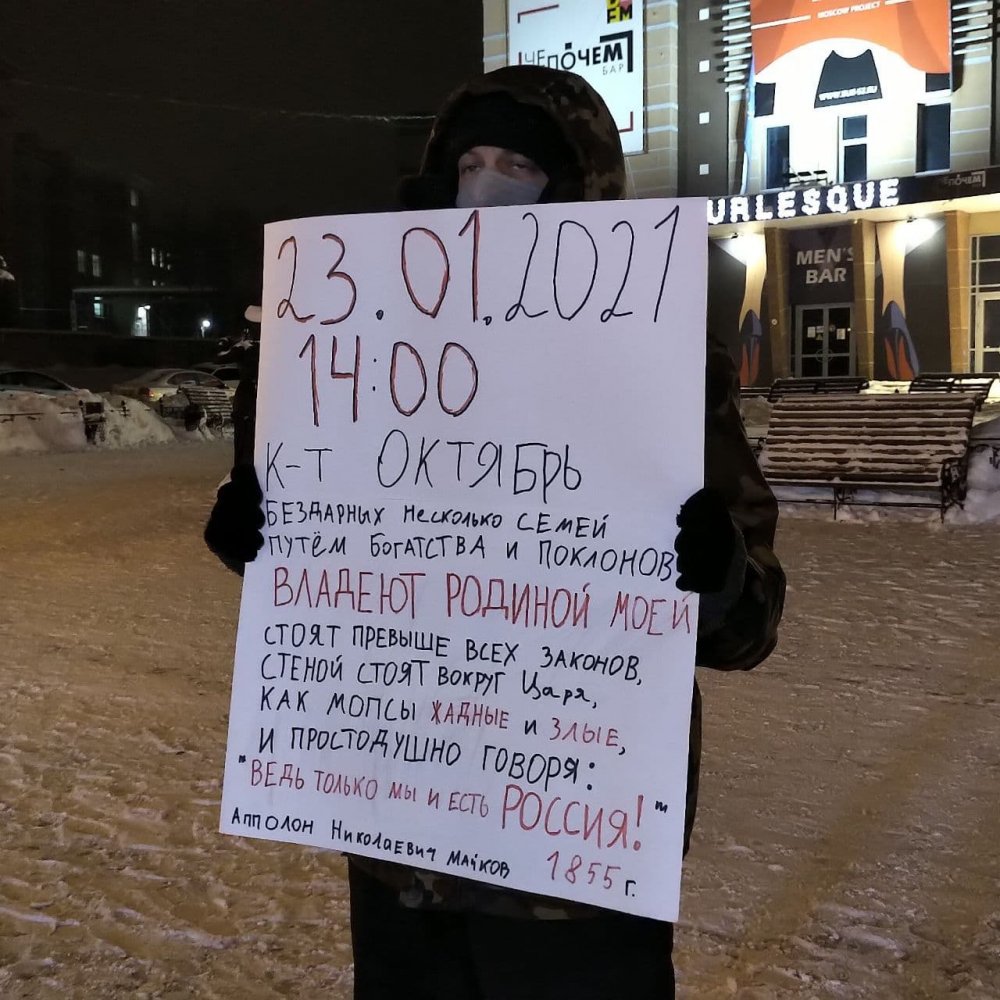 ЧЕПОЧЕМ
БАР
FM
MOSCOW PROJECT
URLESQUE
ЧЕПОЧЕМ
MEN'S
BAR
23.01.2021
14:00
К-Т ОКТЯБРЬ
БЕЗДАРНЫХ НЕСКОЛЬКО СЕМЕЙ
ПУТЁМ БОГАТСТВА И ПОКЛОНОВ
ВЛАДЕЮТ РОДИНОЙ МОЕЙ
СТОЯТ ПРЕВЫШЕ ВСЕХ ЗАКОНОВ,
СТЕНОЙ СТОЯТ ВОКРУГ Царя,
КАК МОПСЫ ЖАДНЫЕ И ЗЛЫЕ,
И ПРОСТОДУШНО ГОВОРЯ:
"ВЕДЬ ТОЛЬКО МЫ И ЕСТЬ РОССИЯ!"
АППОЛОН НИКОЛАЕВИЧ МАЙКОВ 1855 г.